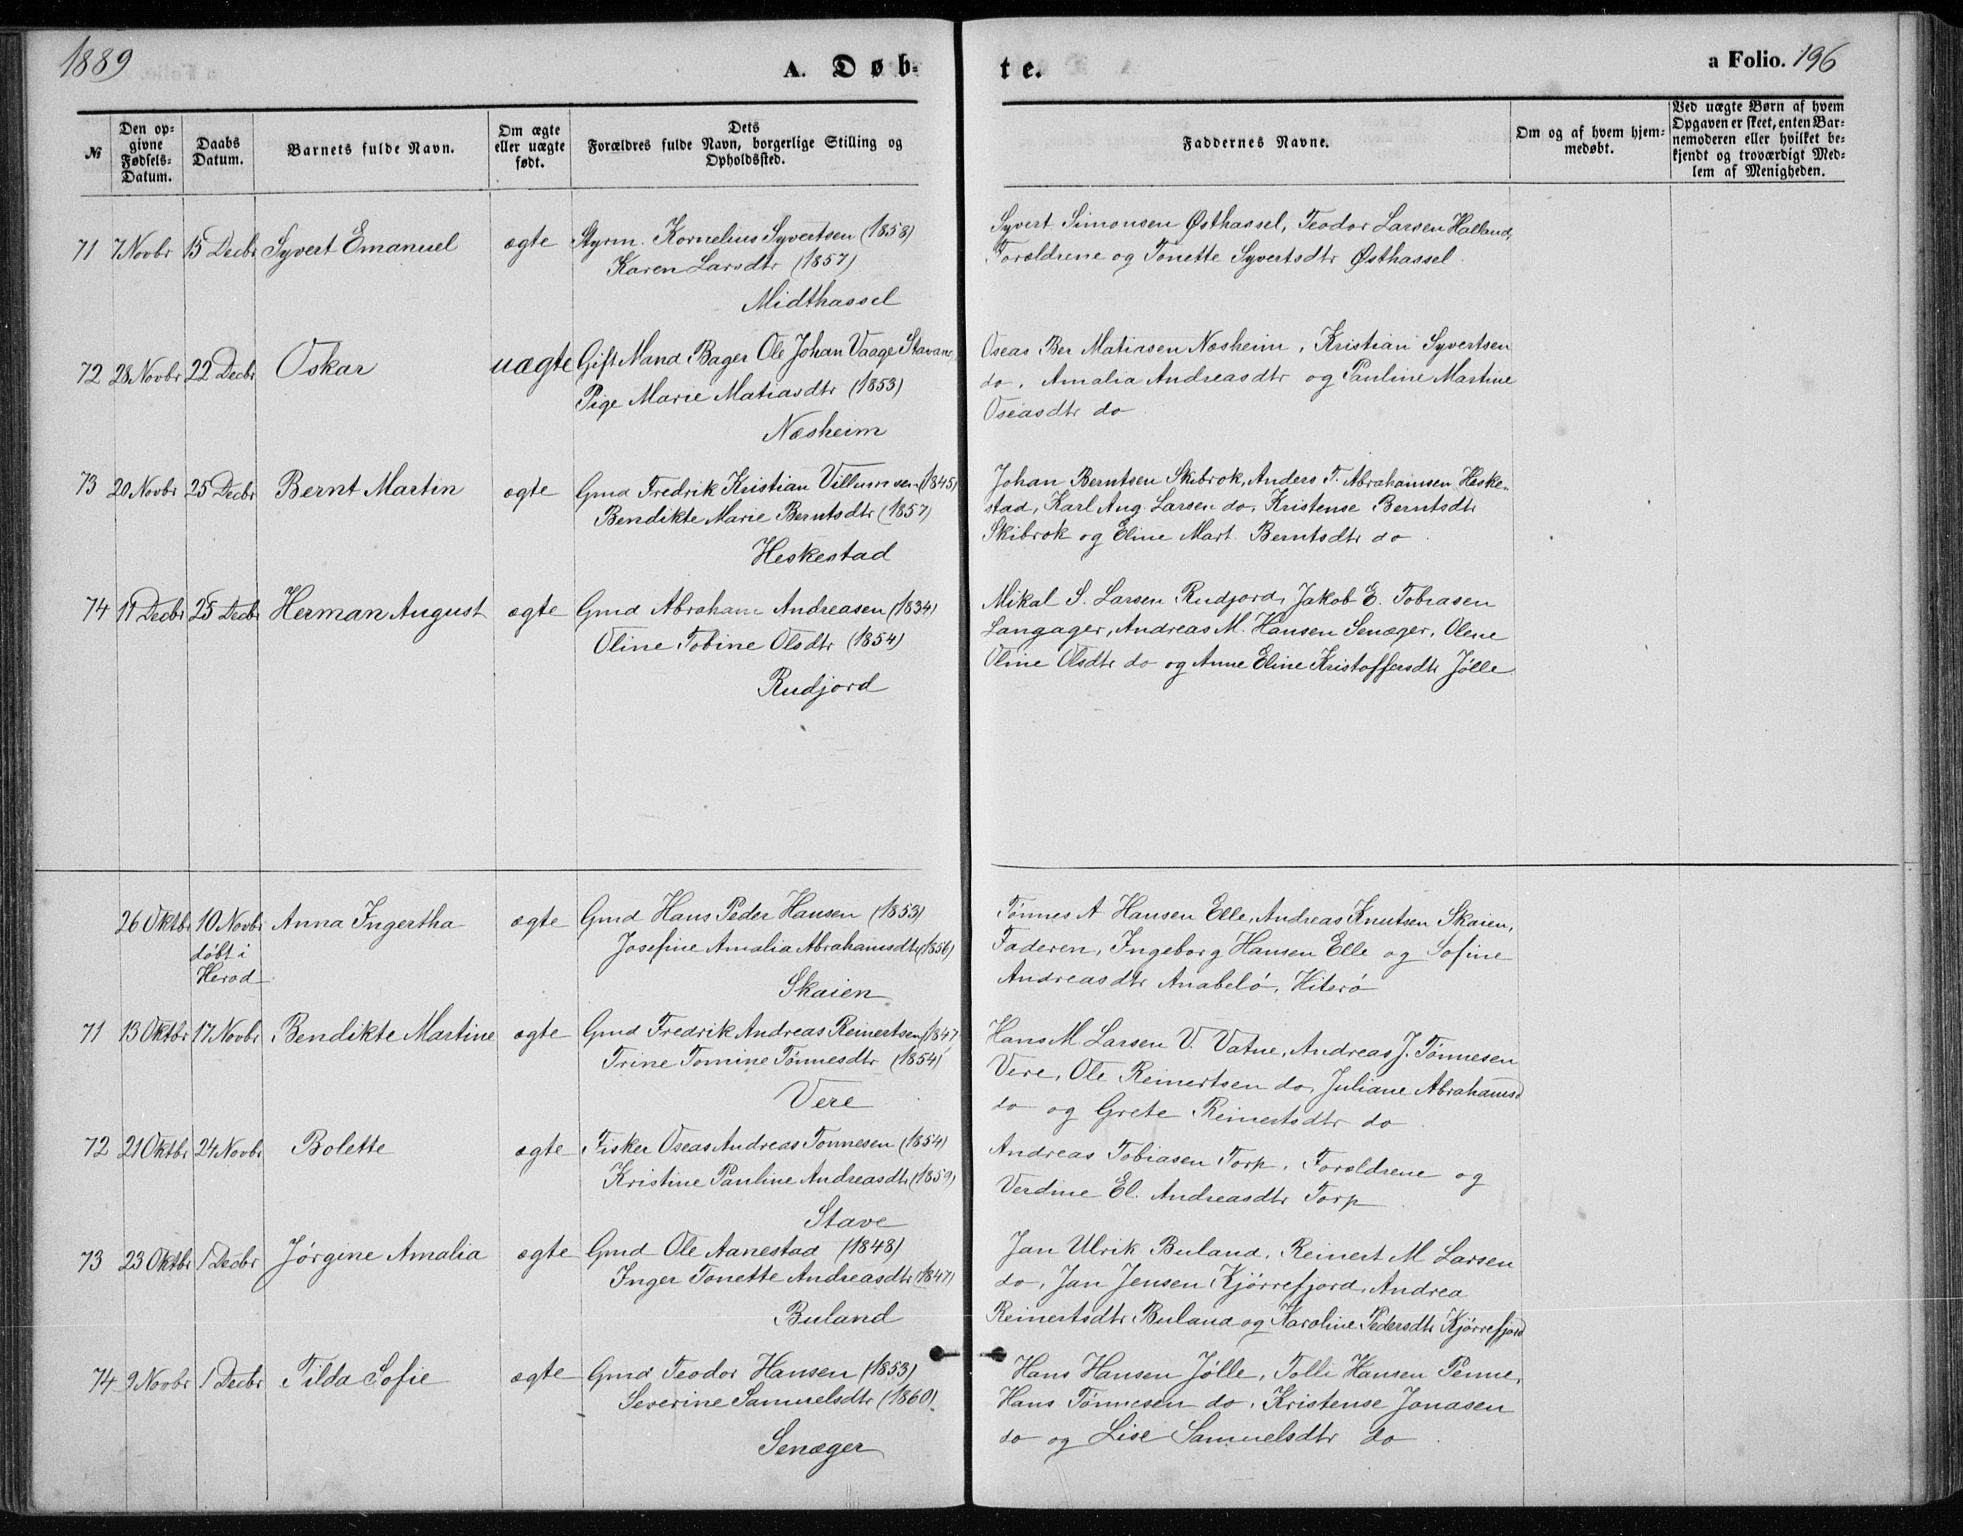 1889
A. Døb-
te.
a Folio. 196
№
Den op-
givne
Fødsels-
Datum.
Daabs
Datum.
Barnets fulde Navn.
Om ægte
eller uægte
født.
Dets
Forældres fulde Navn, borgerlige Stilling og
Opholdssted.
Faddernes Navne.
Om og af hvem hjem-
medøbt.
Ved uægte Børn af hvem
Opgaven er skeet, enten Bar-
nemoderen eller hvilket be-
kjendt og troværdigt Med-
lem af Menigheden.
71 7 Novbr 15 Decbr Syvert Emanuel ægte Styrm. Kornelius Syvertsen (1858)
Karen Larsdtr (1857)
Midthassel
Syvert Simonsen Østhassel, Teodor Larsen Halland,
Forældrene og Tonette Syvertsdtr Østhassel.
72 28 Novbr 22 Decbr Oskar uægte Gift Mand Bager Ole Johan Vaage Stavang
Pige Marie Matiasdtr (1853)
Næsheim
Oseas Ber Matiasen Næsheim, Kristian Syvertsen
do, Amalia Andreasdtr og Pauline Martine
Oseasdtr do.
73 20 Novbr 25 Decbr Bernt Martin ægte Gmd Fredrik Kristian Villumsen (1845)
Bendikte Marie Berntsdtr (1857)
Heskestad
Johan Berntsen Skibrok, Anders T. Abrahamsen Heske-
stad, Karl Aug. Larsen do, Kristense Berntsdtr
Skibrok og Eline Mart. Berntsdtr do.
74 17 Decbr 25 Decbr Herman August ægte Gmd Abraham Andreasen (1834)
Oline Tobine Olsdtr (1854)
Rudjord
Mikal S. Larsen Rudjord, Jakob E. Tobiasen
Langager, Andreas M. Hansen Senæger, Olene
Oline Olsdtr do og Anne Eline Kristoffersdtr Jølle.
26 Oktbr 10 Novbr Anna Ingertha ægte Gmd Hans Peder Hansen (1853)
døbt i
Herad
Josefine Amalia Abrahamsdtr (1856)
Skaien
Tønnes A Hansen Elle, Andreas Knutsen Skaien,
Faderen, Ingeborg Hansen Elle og Sofine
Andreasdtr Anabelø, Hiterø
71 13 Oktbr 17 Novbr Bendikte Martine ægte Gmd Fredrik Andreas Reinertsen (1847)
Trine Tomine Tønnesdtr (1854)
Vere
Hans M. Larsen V. Vatne, Andreas J. Tønnesen
Vere, Ole Reinertsen do, Juliane Abrahamsd
do og Grete Reinertsdtr do.
72 21 Oktbr 24 Novbr Bolette ægte Fisker Oseas Andreas Tønnesen (1854)
Kristine Pauline Andreasdtr (1859)
Stave
Andreas Tobiasen Torp, Forældrene og
Verdine El. Andreasdtr Torp
73 23 Oktbr 1 Decbr Jørgine Amalia ægte Gmd Ole Aanestad (1848)
Inger Tonette Andreasdtr (1847)
Buland
Jan Ulrik Buland, Reinert M Larsen
do, Jan Jensen Kjørrefjord, Andrea
Reinertsdtr Buland og Karoline Pedersdtr Kjørrefjord
74 9 Novbr 1 Decbr Tilda Sofie ægte Gmd Teodor Hansen (1853)
Severine Samuelsdtr (1860).
Senæger
Hans Hansen Jølle, Tolli Hansen Penne,
Hans Tønnesen do, Kristense Jonasen
do og Lise Samuelsdtr do.